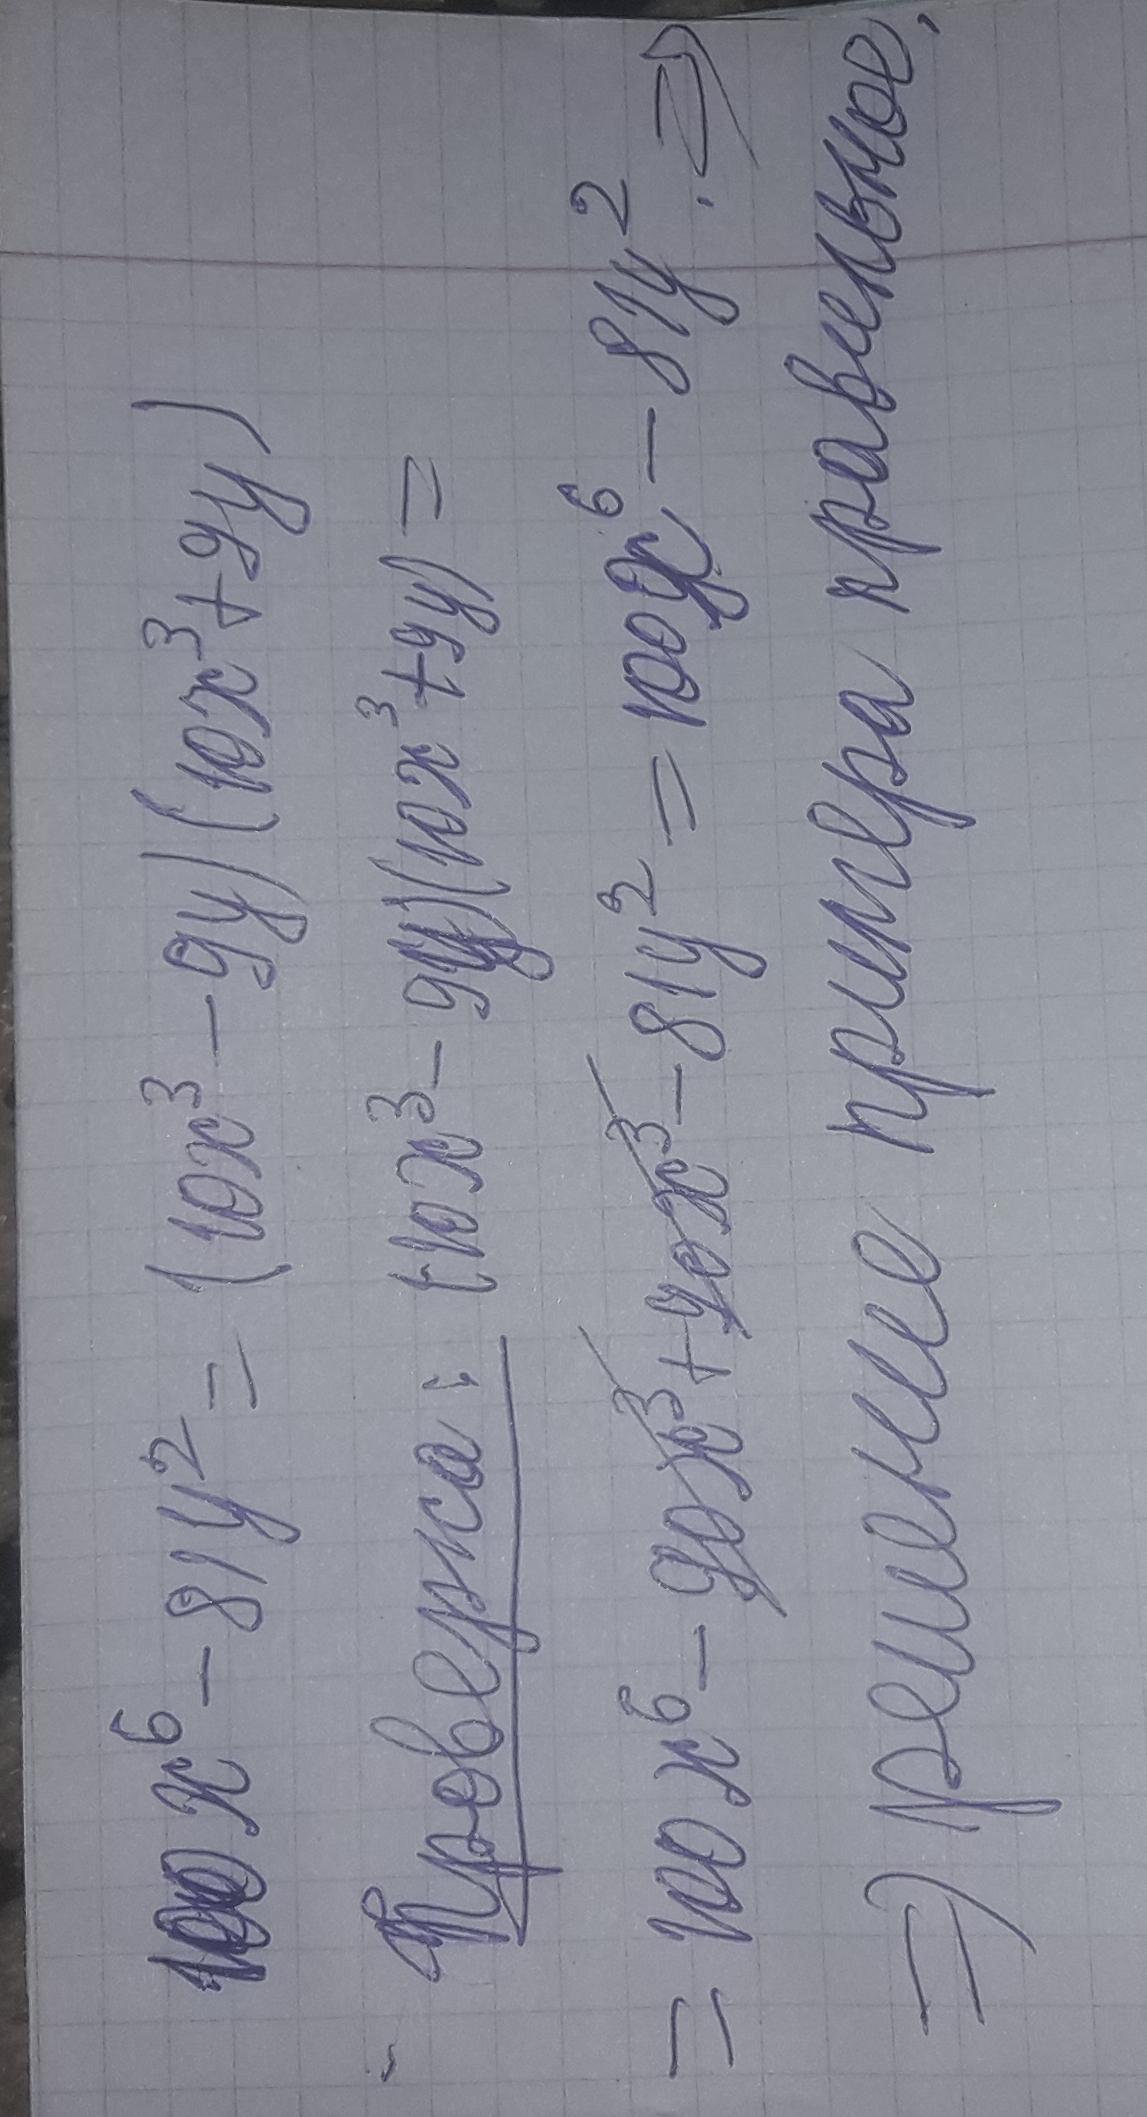 100x⁶ - 81y² = (10x³ - 9y)(10x³ + 9y)
Проверка: (10x³ - 9y)(10x³ + 9y) =
= 100x⁶ - 90x³ + 90x³ - 81y² = 100x⁶ - 81y². ⇒
⇒ решение примера правильное.